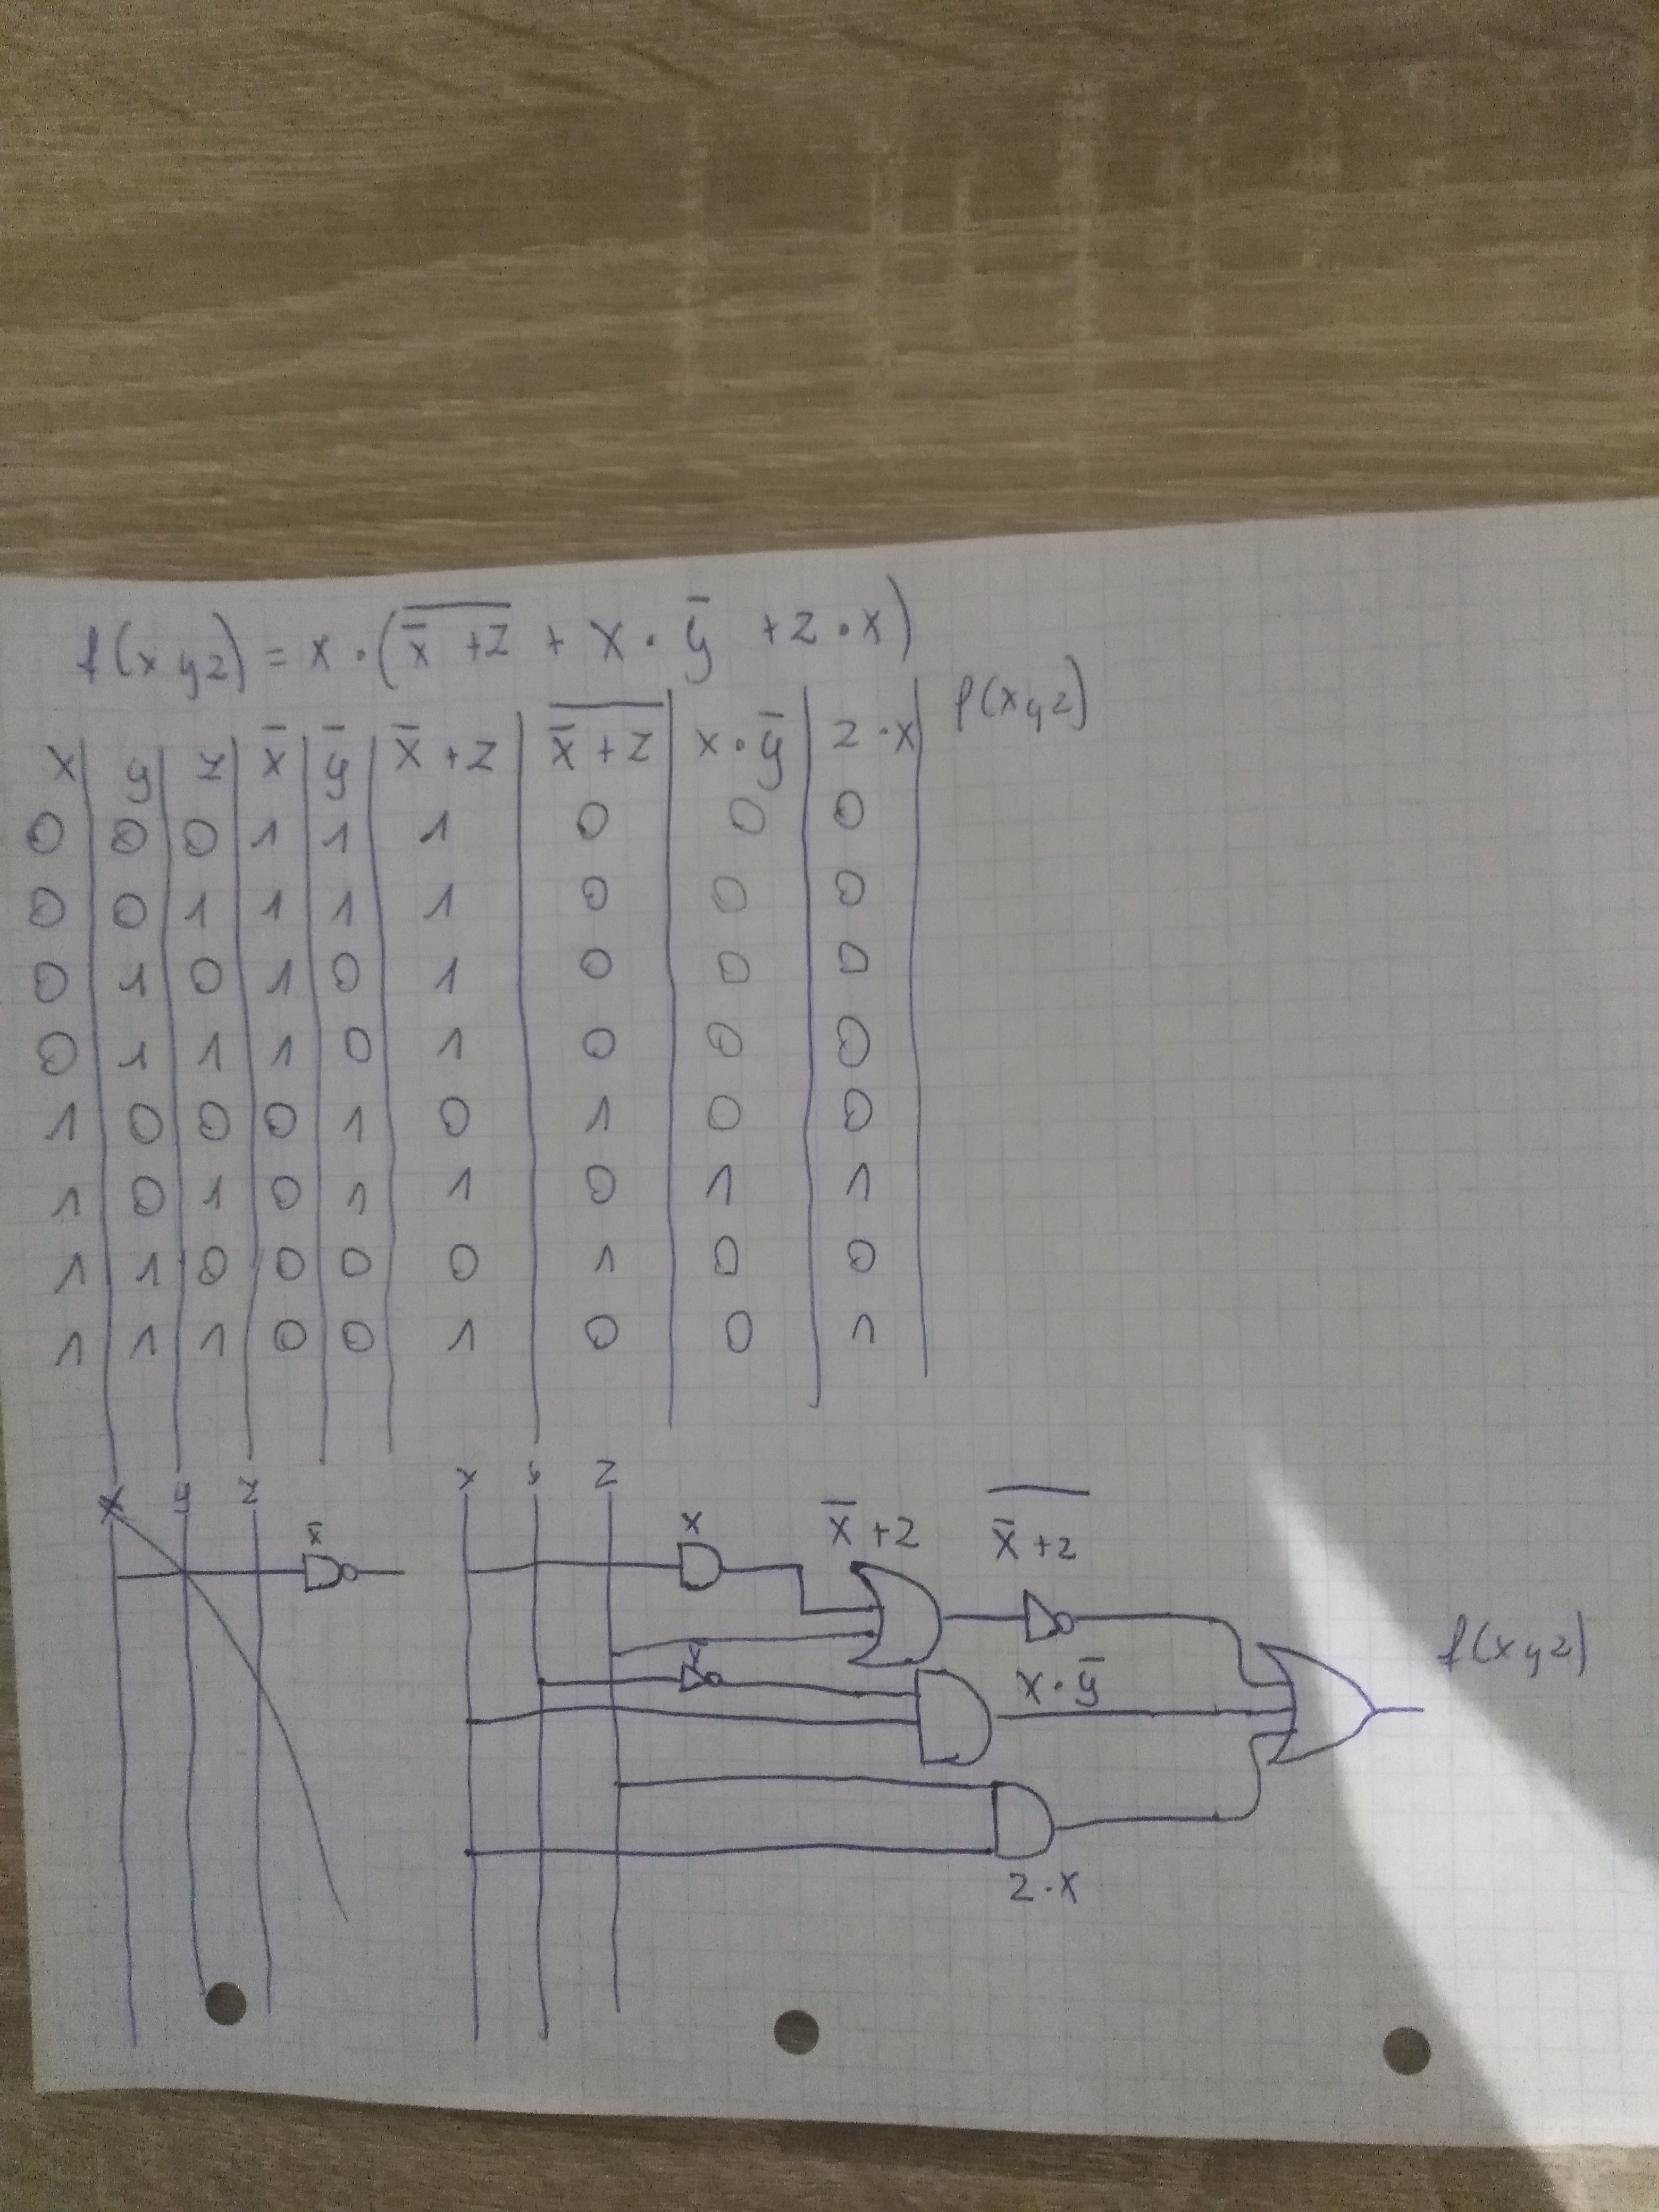 f(x y z) = x · (x̅ + z̅ + x · ȳ + z · x)
x y z x̄ ȳ x̄ + z x̄ + z x · ȳ z · x f(x y z)
0 0 0 1 1 1 0 0 0
0 0 1 1 1 1 0 0 0
0 1 0 1 0 1 0 0 0
0 1 1 1 0 1 0 0 0
1 0 0 0 1 0 1 0 0
1 0 1 0 1 1 0 1 1
1 1 0 0 0 0 1 0 0
1 1 1 0 0 1 0 0 1
x y z x̄
x y z x x̄ + z x̄ + z
x · ȳ f(x y z)
z · x